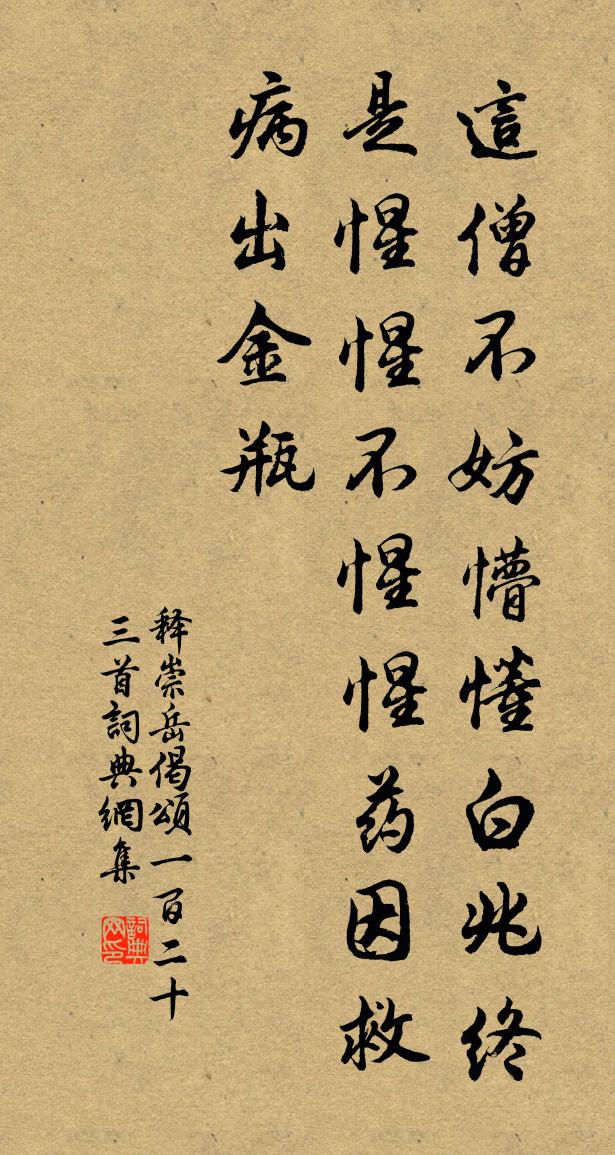 這僧不妨懵懂白兆終
是惺惺不惺惺药因救
病出金瓶
释崇岳偈頌一百二十
三首詞典網集
詞典网印